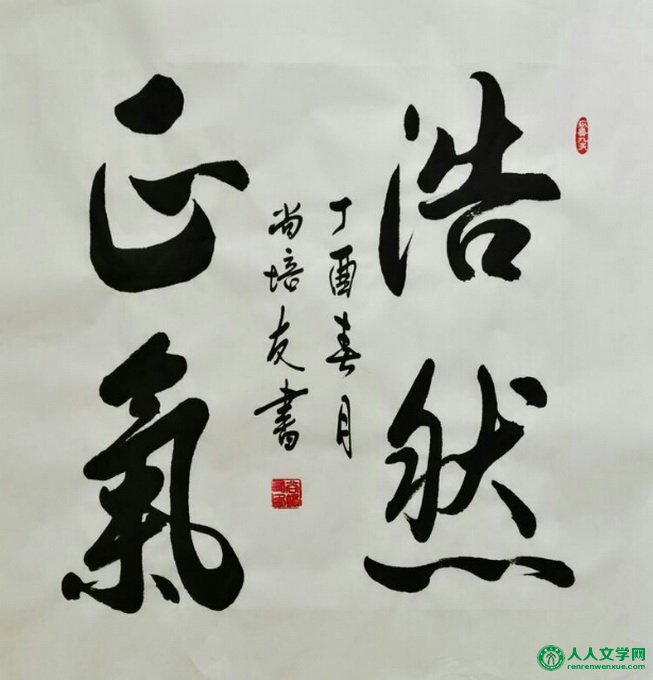 浩然
正氣
丁酉春月
尚培友書
人人文学网
renrenwenxue.com